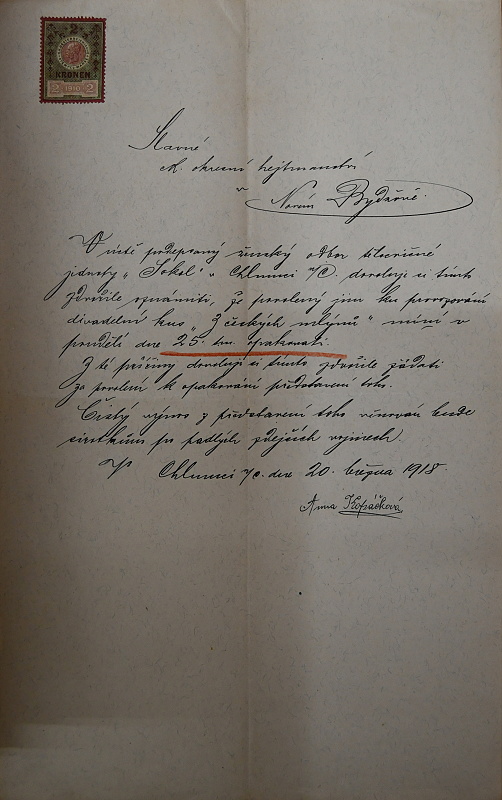 KRONEN
2 1910 2
Slavné
c.k. okresní hejtmanství
v
Novém Bydžově.
V úctě podepsaný ženský odbor tělocvičné
jednoty „Sokol" v Chlumci n/C. dovoluje si tímto
zdvořile oznámiti, že povolený jim ku provozování
divadelní kus „Z českých mlýnů" míní v
pondělí dne 25. tm. opakovati.
Z té příčiny dovoluje si tímto zdvořile žádati
za povolení k opakování představení toho.
Čistý výnos z představení toho věnován bude
sirotkům po padlých zdejších vojínech.
V Chlumci n/C. dne 20. března 1918.
Anna Kopáčková